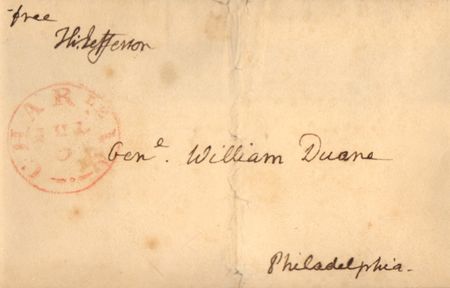 free
Th: Jefferson
Genl. William Duane
Philadelphia.